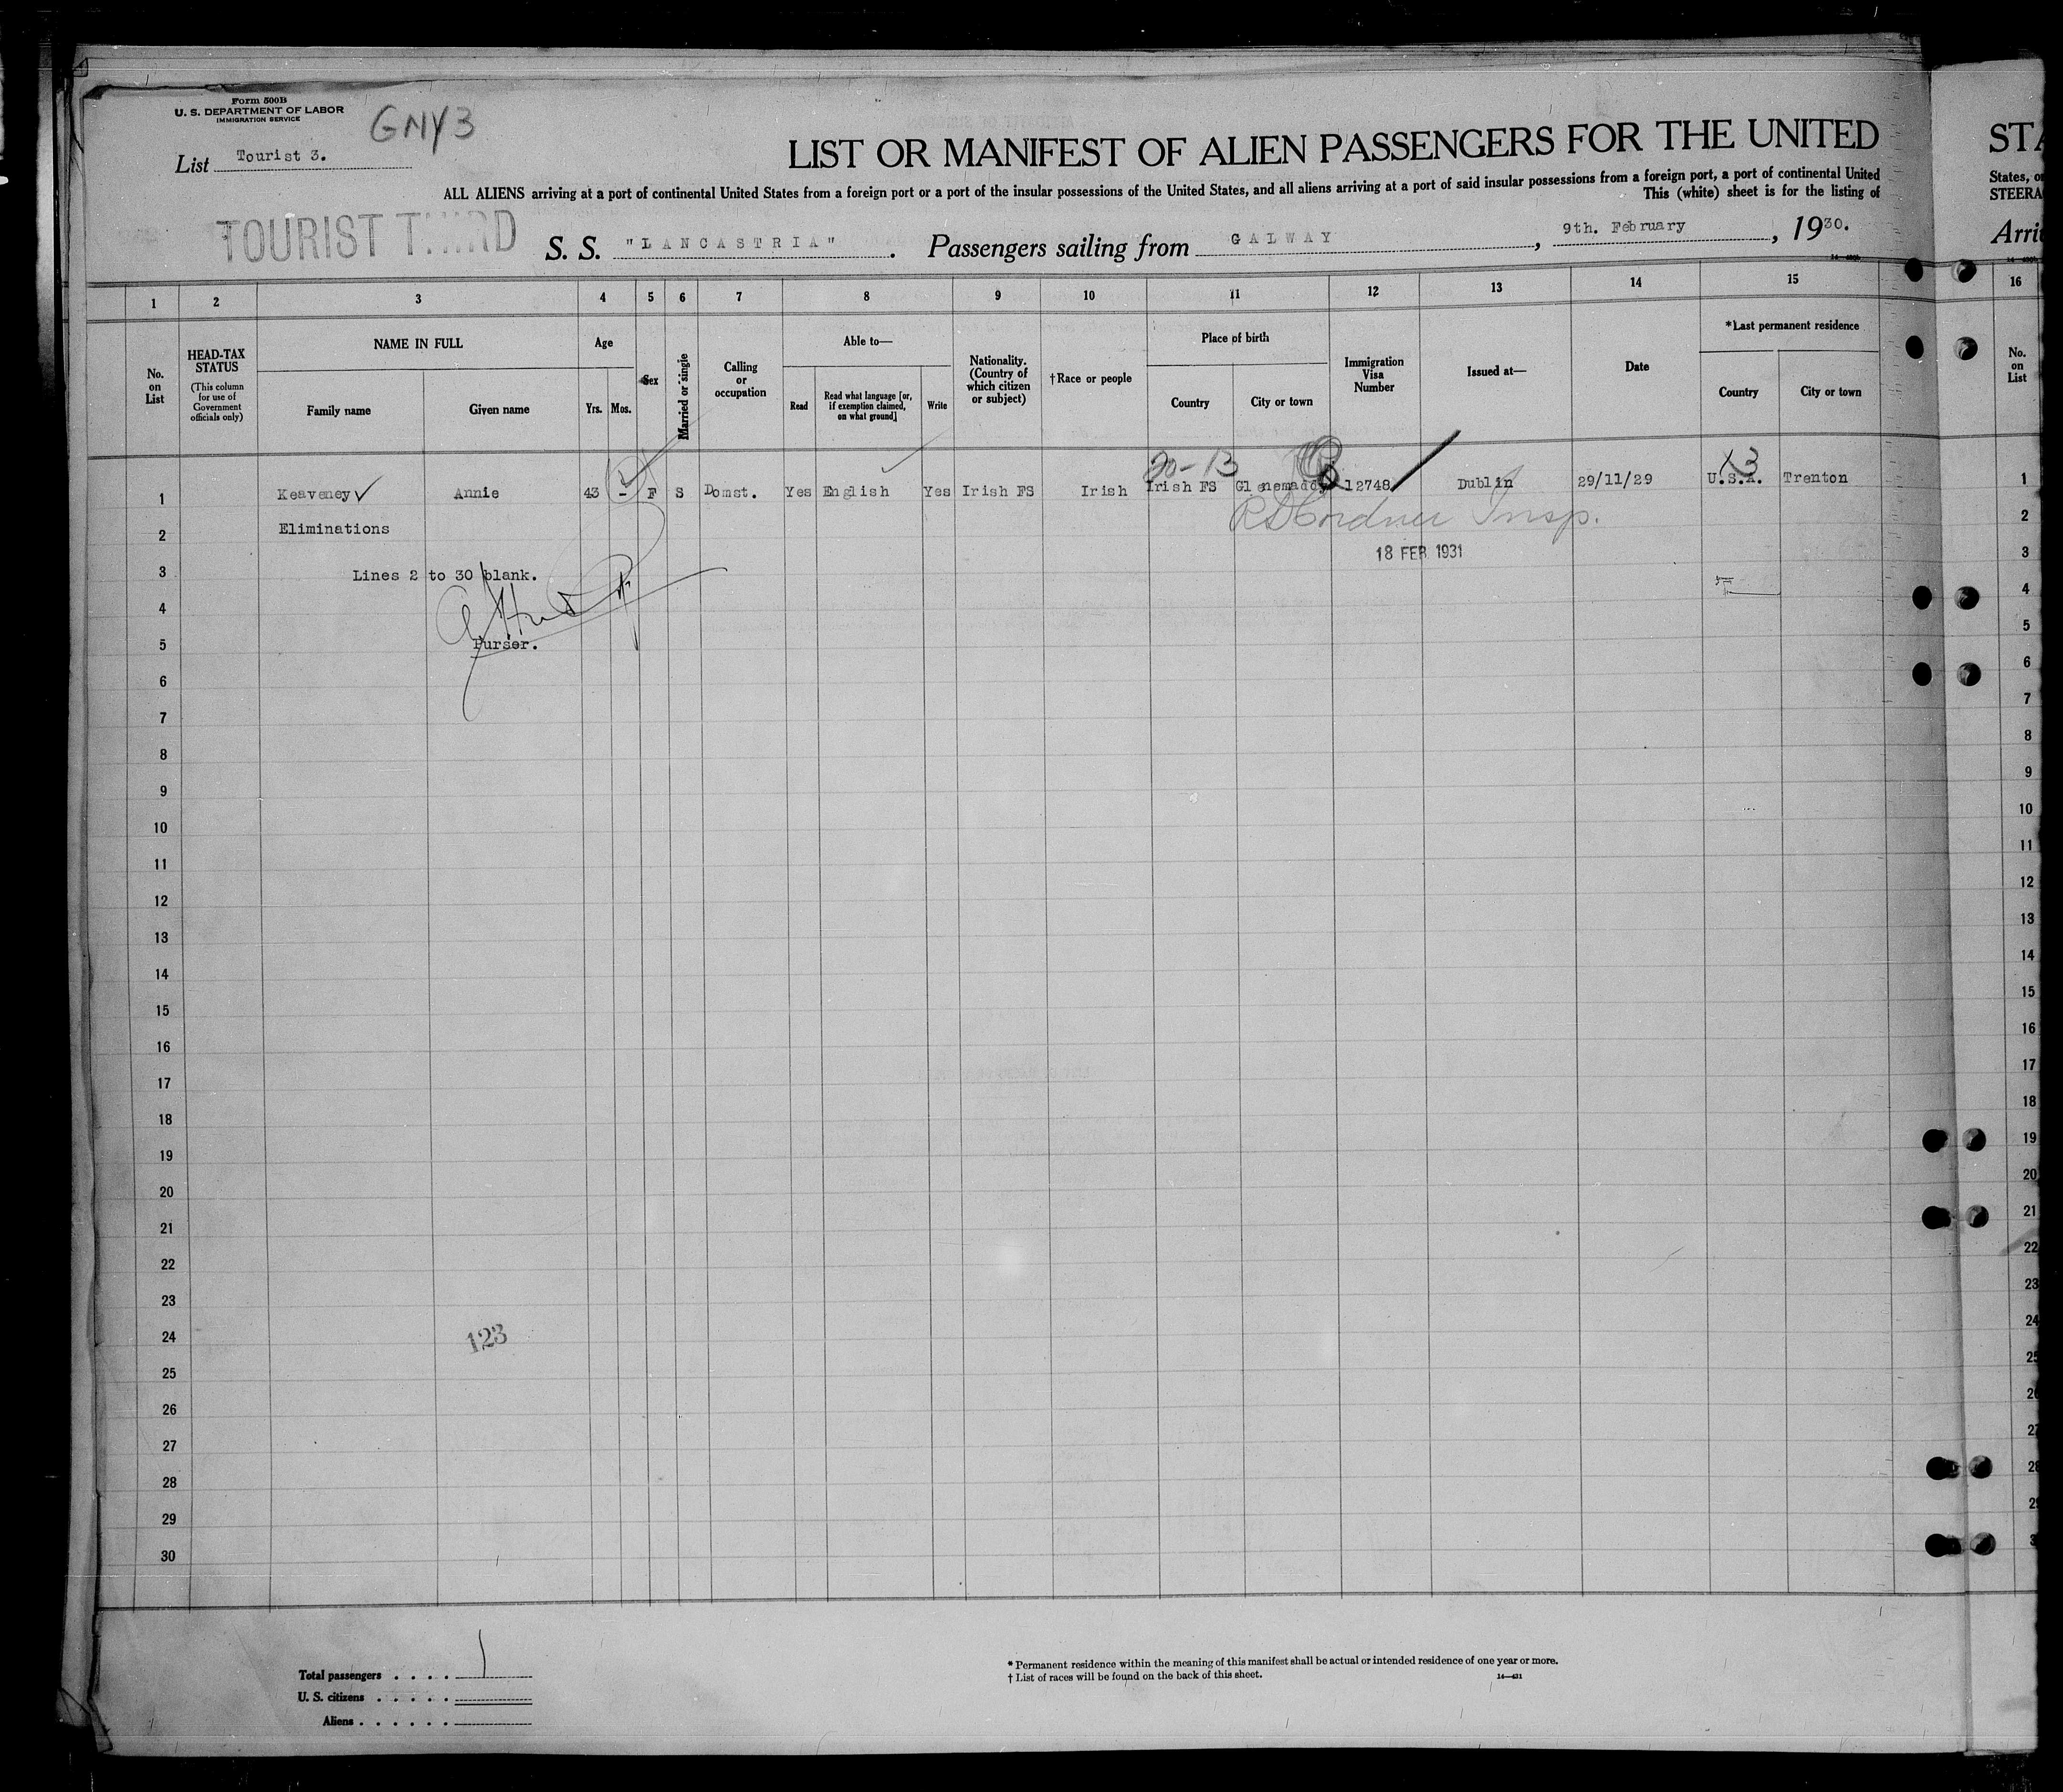 Form 500B
U. S. DEPARTMENT OF LABOR
IMMIGRATION SERVICE
GNY 3
List Tourist 3.
LIST OR MANIFEST OF ALIEN PASSENGERS FOR THE UNITED
STA
ALL ALIENS arriving at a port of continental United States from a foreign port or a port of the insular possessions of the United States, and all aliens arriving at a port of said insular possessions from a foreign port, a port of continental United
States, or
This (white) sheet is for the listing of
STEERA
TOURIST THIRD
S. S. "LANCASTRIA". Passengers sailing from GALWAY, 9th. February, 1930.
Arri
1 2 3 4 5 6 7 8 9 10 11 12 13 14 15 16
No. on List
HEAD-TAX STATUS (This column for use of Government officials only)
NAME IN FULL
Family name
Given name
Age
Yrs. Mos.
Sex
Married or single
Calling or occupation
Able to—
Read
Read what language [or, if exemption claimed, on what ground]
Write
Nationality. (Country of which citizen or subject)
†Race or people
Place of birth
Country
City or town
Immigration Visa Number
Issued at—
Date
*Last permanent residence
Country
City or town
No. on List
20-13
X3
1 Keaveney Annie 43 - F S Domst. Yes English Yes Irish FS Irish Irish FS Glenemaddy 12748 Dublin 29/11/29 U.S.A. Trenton 1
2 Eliminations Insp. 2
18 FEB 1931
3 Lines 2 to 30 blank. 3
4 4
Purser.
5 5
6 6
7 7
8 8
9 9
10 10
11 11
12 12
13 13
14 14
15 15
16 16
17 17
18 18
19 19
20 20
21 21
22 22
23 23
24 24
123
25 25
26 26
27 27
28 28
29 29
30 3
Total passengers . . . . 1
U. S. citizens . . . . .
Aliens . . . . . .
* Permanent residence within the meaning of this manifest shall be actual or intended residence of one year or more.
† List of races will be found on the back of this sheet.
14—431